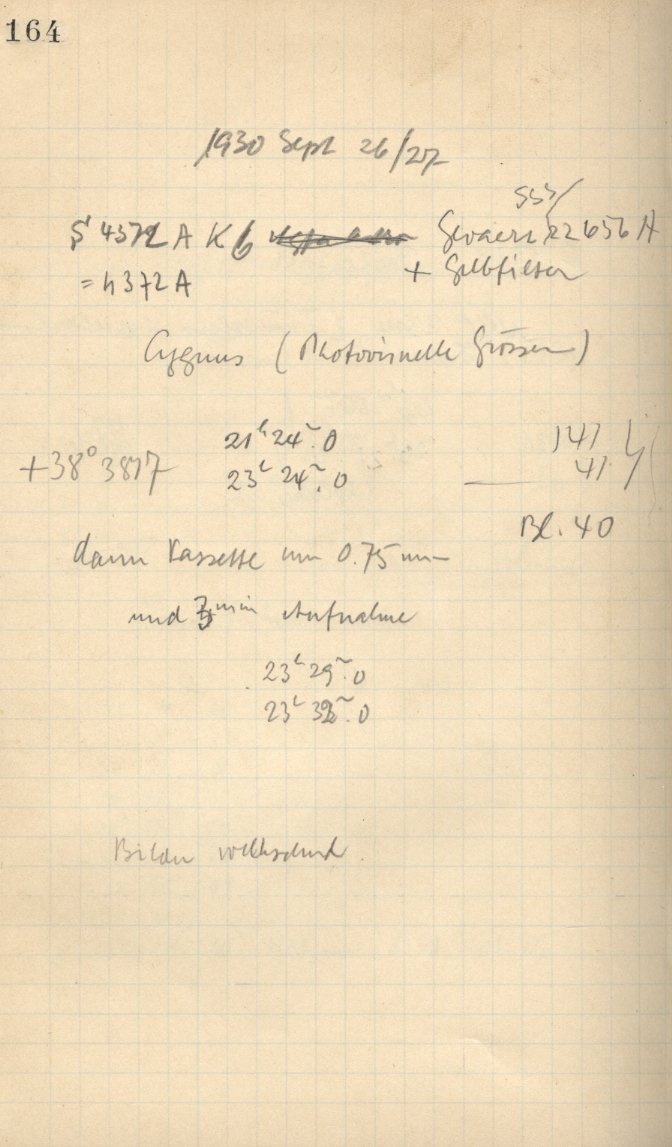 164
1930 Sept 26/27
S 4372 A K 6 Gevaert 22656 A
= h 372 A + Gelbfilter
Cygnus (Photovisuelle Grössen)
21ʰ 24ᵐ.0 141
+38° 3817 23ʰ 24ᵐ.0 41
Bl. 40
dann Kassette um 0.75 mm
und 3ᵐⁱⁿ Aufnahme
23ʰ 29ᵐ.0
23ʰ 32ᵐ.0
Bilder wechselnd